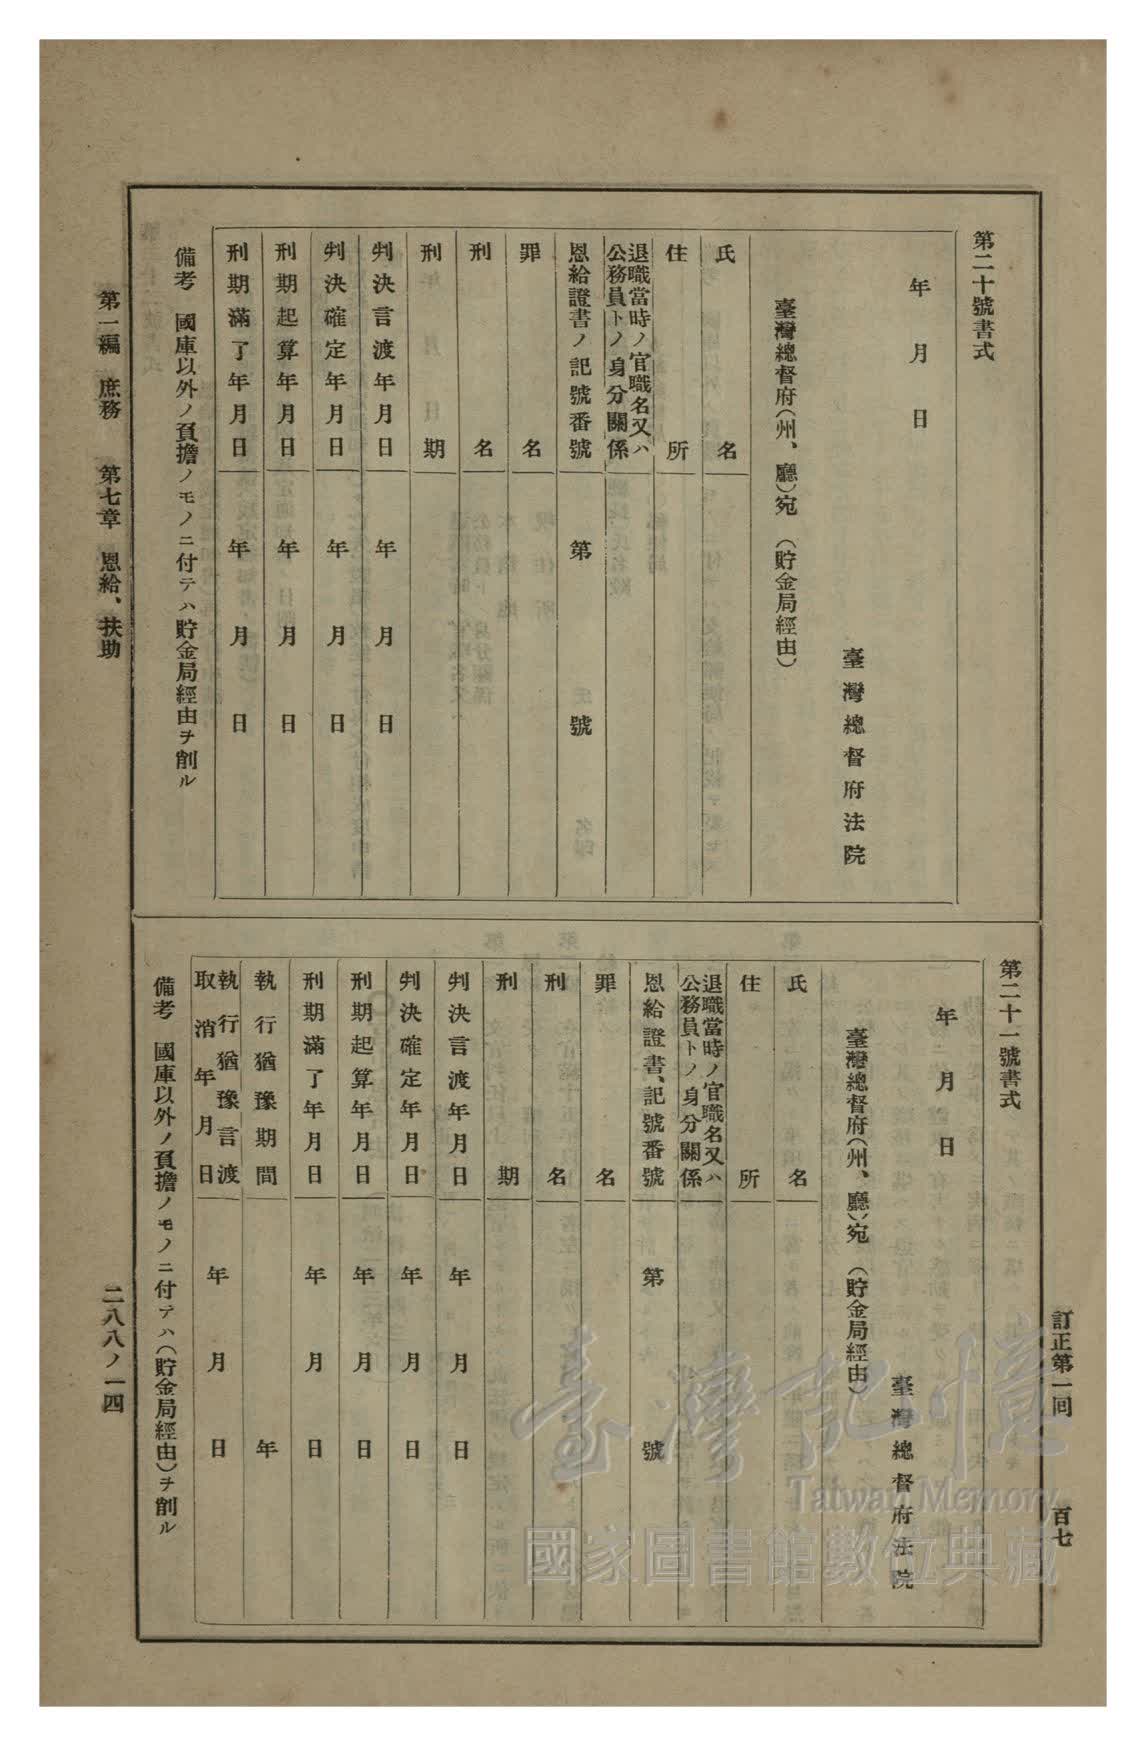 訂正第一回　百七
第二十號書式
年　月　日
臺灣總督府法院
臺灣總督府(州、廳)宛　(貯金局經由)
氏名
住所
退職當時ノ官職名又ハ
公務員トノ身分關係
恩給證書ノ記號番號　第　號
罪名
刑名
刑期
判決言渡年月日　年　月　日
判決確定年月日　年　月　日
刑期起算年月日　年　月　日
刑期滿了年月日　年　月　日
備考　國庫以外ノ負擔ノモノニ付テハ貯金局經由ヲ削ル
第二十一號書式
年　月　日
臺灣總督府法院
臺灣總督府(州、廳)宛　(貯金局經由)
氏名
住所
退職當時ノ官職名又ハ
公務員トノ身分關係
恩給證書、記號番號　第　號
罪名
刑名
刑期
判決言渡年月日　年　月　日
判決確定年月日　年　月　日
刑期起算年月日　年　月　日
刑期滿了年月日　年　月　日
執行猶豫期間　年
執行猶豫言渡
取消年月日　年　月　日
備考　國庫以外ノ負擔ノモノニ付テハ(貯金局經由)ヲ削ル
第一編　庶務　第七章　恩給、扶助　二八八ノ一四
臺灣記憶
Taiwan Memory
國家圖書館數位典藏